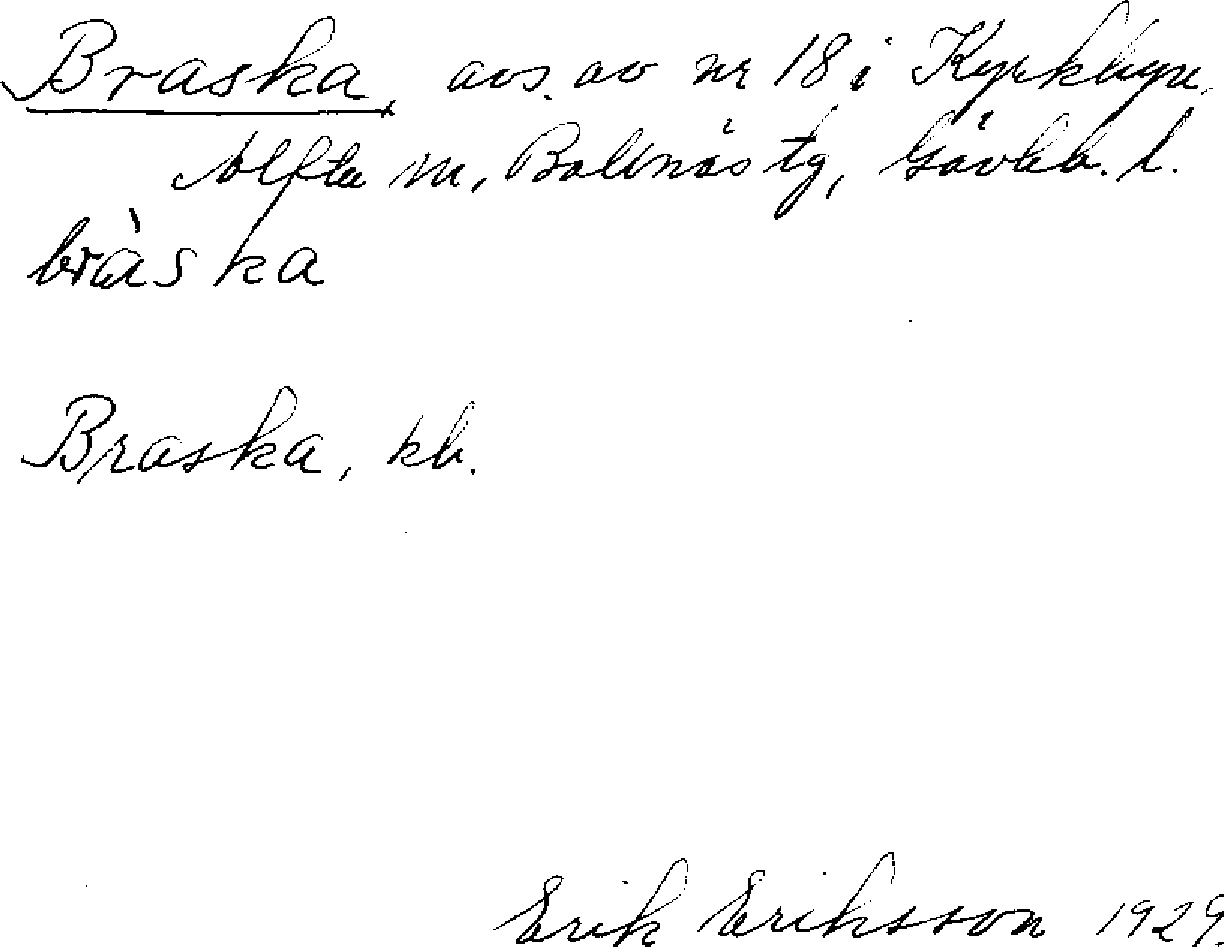 Braska, avs. av nr 18 i Kyrkbyn,
Alfta sn, Bollnäs tg, Gävleb. l.
bràska
Braska, kb.
Erik Eriksson 1929